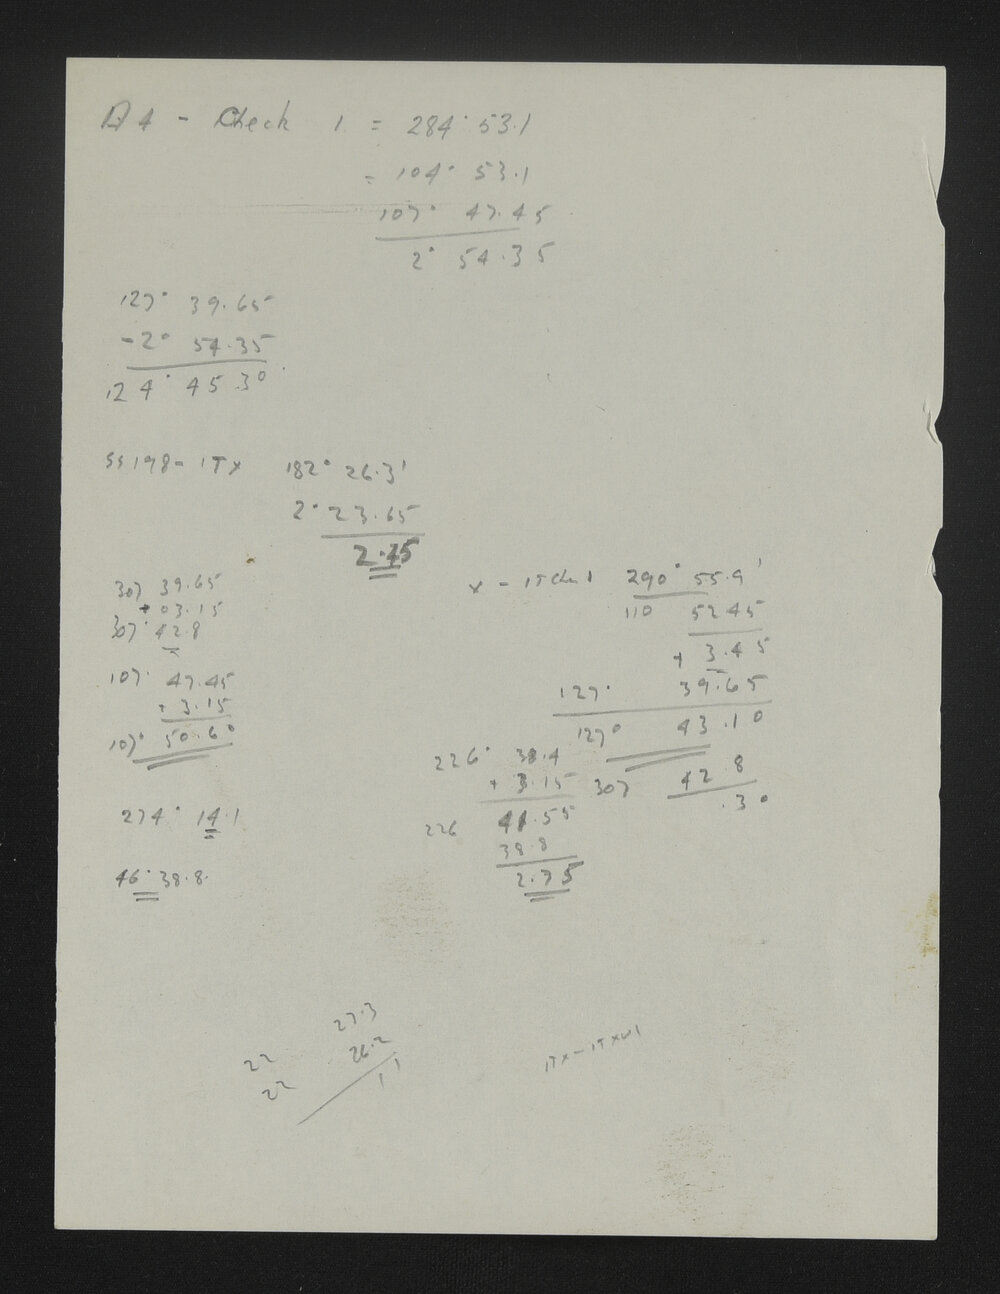 A4 - Check 1 = 284° 53.1
= 104° 53.1
107° 47.45
2° 54.35
127° 39.65
-2° 54.35
124° 45.30
SS198 - 1TX 182° 26.3'
2° 23.65
2.45
307 39.65
+ 03.15
307° 42.8
107° 47.45
+ 3.15
107° 50.60
274° 14.1
46° 38.8
x - 1T Chn 1 290° 55.9'
110 52.45
+ 3.45
127° 39.65
127° 43.10
307 42.8
.30
226° 38.4
+ 3.15
226 41.55
38.8
2.75
27.3
22 26.2
22 1.1
1TX - 1TXW1